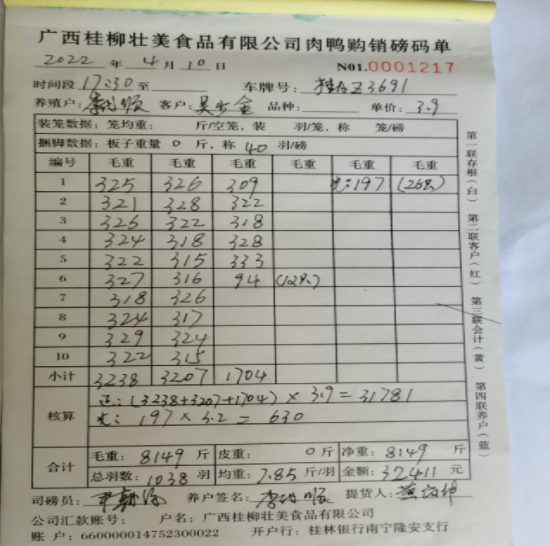 广西桂柳壮美食品有限公司肉鸭购销磅码单
2022 年 4 月 10 日 N01.0001217
时间段 17:30 至 车牌号: 桂A Z3691
养殖户: 客户: 品种: 单价: 3.9
装笼数据: 笼均重: 斤/空笼, 装 羽/笼, 称 笼/磅
捆脚数据: 板子重量 0 斤, 称 40 羽/磅
编号 毛重 毛重 毛重 毛重 毛重 毛重
1 325 326 309 197 (26只)
2 321 328 322
3 326 322 318
4 324 318 328
5 322 315 333
6 327 316 94 (12只)
7 318 326
8 324 317
9 329 324
10 322 315
小计 3238 3207 1704
核算
(3238+3207+1704) × 3.9 = 31781
197 × 3.2 = 630
合计
毛重: 8149 斤 皮重: 0 斤 净重: 8149 斤
总羽数: 1038 羽 均重: 7.85 斤/羽 金额: 32411 元
司磅员: 养户签名: 提货人:
公司汇款账号: 户名: 广西桂柳壮美食品有限公司
账户: 660000014752300022 开户行: 桂林银行南宁隆安支行
第一联存根(白) 第二联客户(红) 第三联会计(黄) 第四联养户(蓝)